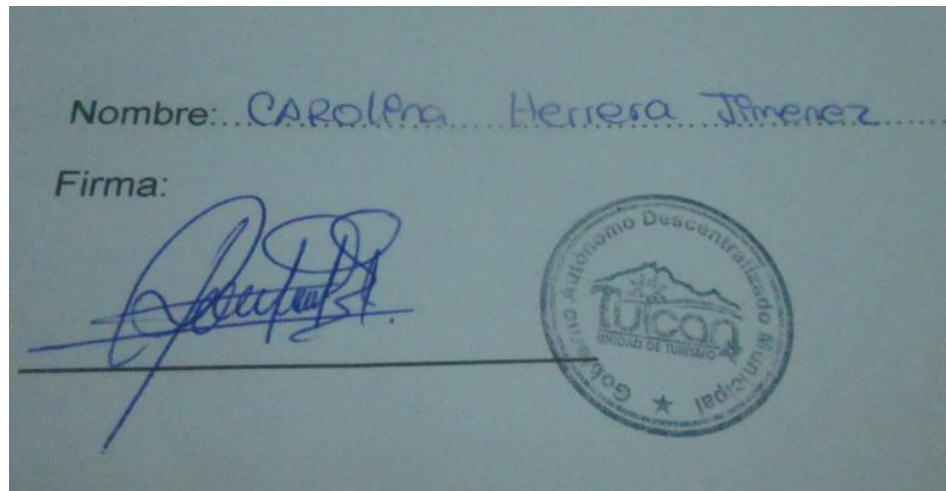 Nombre: CARolina Herrera Jimenez
Firma:
Gobierno Autónomo Descentralizado Municipal
Tulcan
UNIDAD DE TURISMO